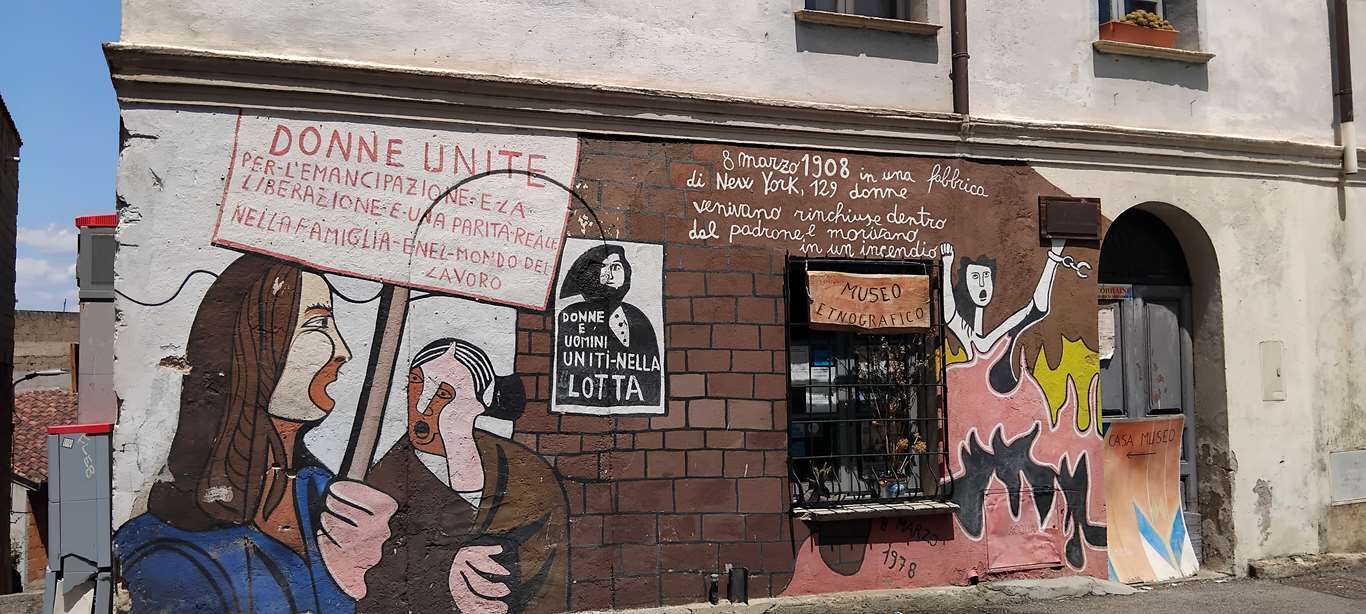 DONNE UNITE
PER-L'EMANCIPAZIONE-E-ZA
LIBERAZIONE-E-UNA PARITÀ-REALE
NELLA FAMIGLIA-E NEL-MONDO-DEL
LAVORO
DONNE
E
UOMINI
UNITI-NELLA
LOTTA
8 marzo 1908 in una fabbrica
di New York, 129 donne
venivano rinchiuse dentro
dal padrone, e morivano
in un incendio
MUSEO
ETNOGRAFICO
CASA MUSEO
8 MARZO
1978